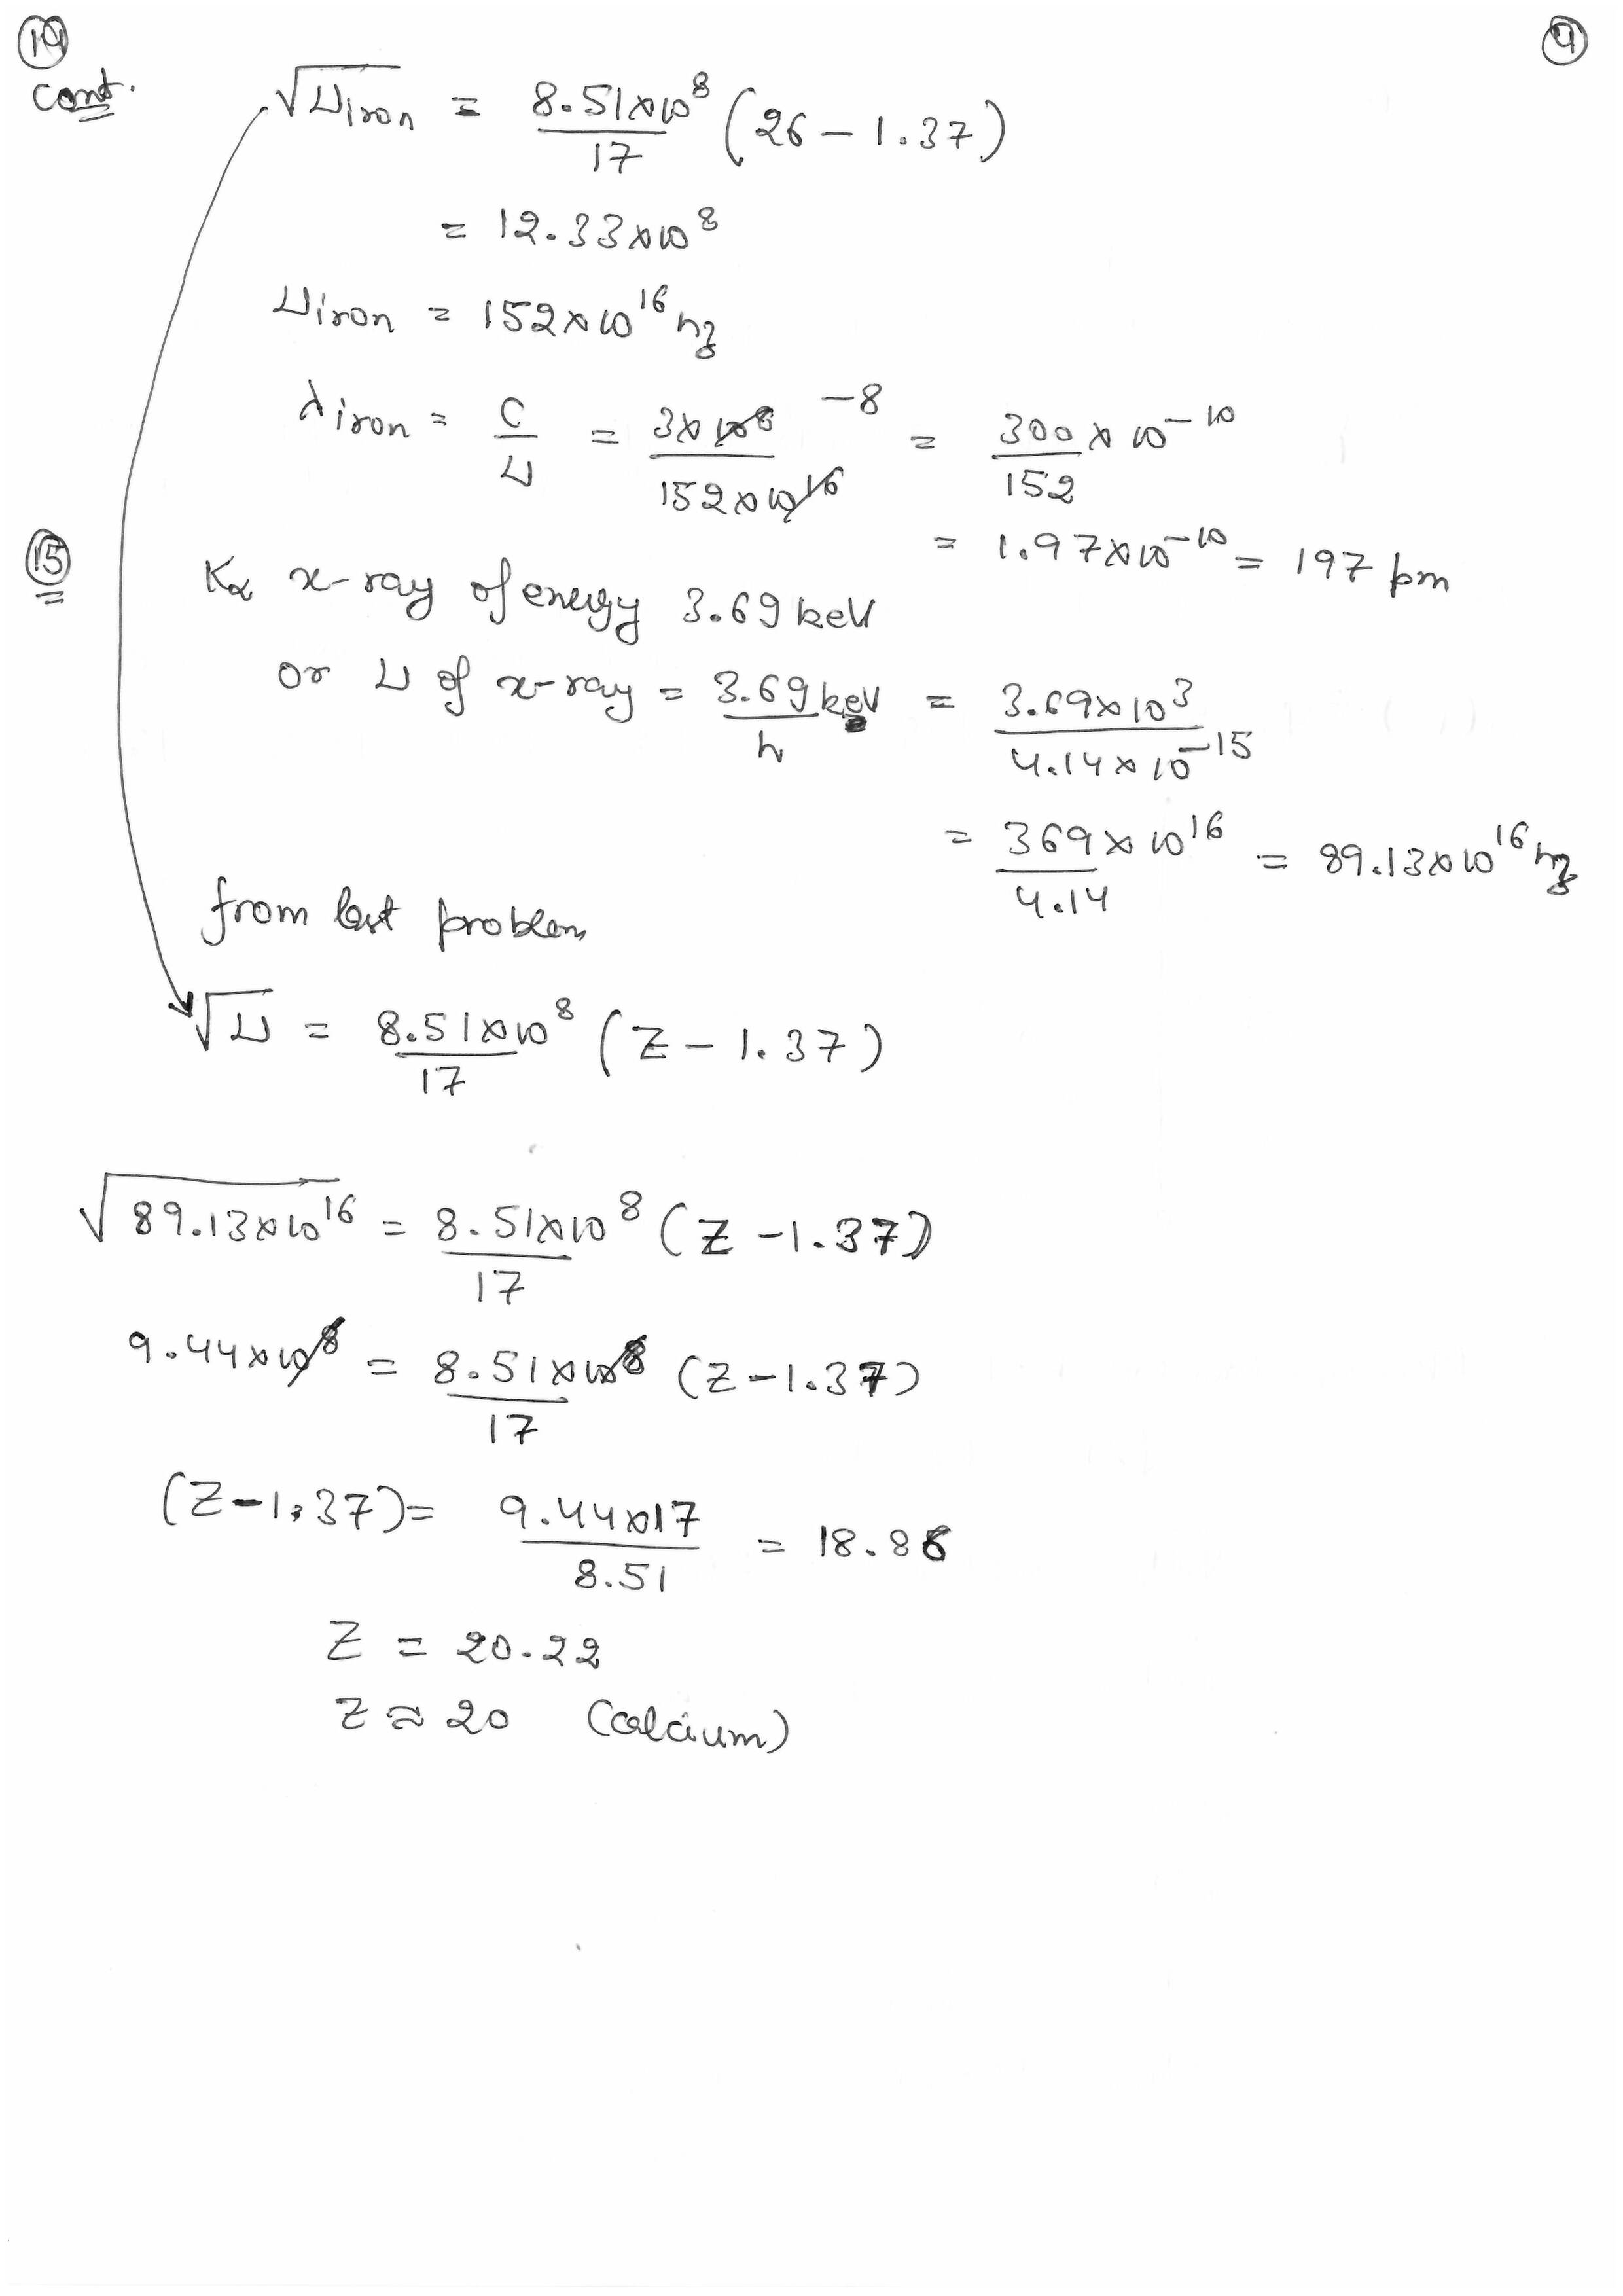 14 4
cont. √νiron = 8.51×10^8/17 (26 − 1.37)
= 12.33×10^8
νiron = 152×10^16 hz
λiron = c/ν = 3×10^8/152×10^16 −8 = 300/152 × 10^−10
= 1.97×10^−10 = 197 pm
15 Kα x-ray of energy 3.69 keV
or ν of x-ray = 3.69 keV/h = 3.69×10^3/4.14×10^−15
= 369×10^16/4.14 = 89.13×10^16 hz
from last problem
√ν = 8.51×10^8/17 (Z − 1.37)
√89.13×10^16 = 8.51×10^8/17 (Z − 1.37)
9.44×10^8 = 8.51×10^8/17 (Z − 1.37)
(Z − 1.37) = 9.44×17/8.51 = 18.86
Z = 20.22
Z ≈ 20 (calcium)